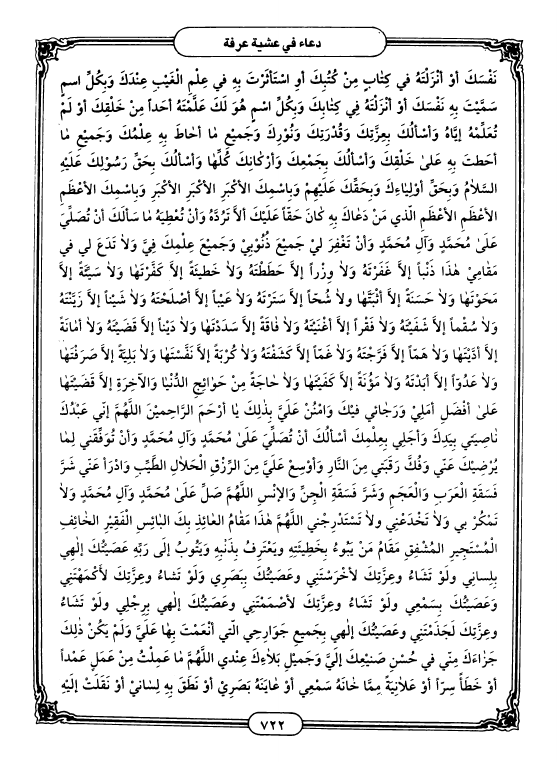 دعاء في عشية عرفة
نَفْسَكَ أَوْ أَنْزَلْتَهُ في كِتٰابٍ مِنْ كُتُبِكَ أَوِ اسْتَأْثَرْتَ بِهِ في عِلْمِ الْغَيْبِ عِنْدَكَ وَبِكُلِّ اسْمٍ
سَمَّيْتَ بِهِ نَفْسَكَ أَوْ أَنْزَلْتَهُ فِي كِتٰابِكَ وَبِكُلِّ اسْمٍ هُوَ لَكَ عَلَّمْتَهُ أَحَداً مِنْ خَلْقِكَ أَوْ لَمْ
تُعَلِّمْهُ إِيَّاهُ وَأَسْأَلُكَ بِعِزَّتِكَ وَقُدْرَتِكَ وَنُورِكَ وَجَمِيعِ مٰا أَحٰاطَ بِهِ عِلْمُكَ وَجَمِيعِ مٰا
أَحَطتَ بِهِ عَلىٰ خَلْقِكَ وَأَسْأَلُكَ بِجَمْعِكَ وَأَرْكٰانِكَ كُلِّهٰا وَأَسْأَلُكَ بِحَقِّ رَسُوْلِكَ عَلَيْهِ
السَّلاٰمُ وَبِحَقِّ أَوْلِيٰاءِكَ وَبِحَقِّكَ عَلَيْهِمْ وَبِاسْمِكَ الأَكْبَرِ الأَكْبَرِ الأَكْبَرِ وَبِاسْمِكَ الأَعْظَمِ
الأَعْظَمِ الأَعْظَمِ الَّذي مَنْ دَعٰاكَ بِهِ كٰانَ حَقّاً عَلَيْكَ أَلاَّ تَرُدَّهُ وَأَنْ تُعْطِيَهُ مٰا سَأَلَكَ أَنْ تُصَلِّيَ
عَلىٰ مُحَمَّدٍ وَآلِ مُحَمَّدٍ وَأَنْ تَغْفِرَ لِيْ جَمِيعَ ذُنُوْبِيْ وَجَمِيعَ عِلْمِكَ فِيَّ وَلاٰ تَدَعَ لي في
مَقٰامِيْ هٰذٰا ذَنْباً إِلاَّ غَفَرْتَهُ وَلاٰ وِزْراً إِلاَّ حَطَطْتَهُ وَلاٰ خَطيئَةً إِلاَّ كَفَّرْتَهٰا وَلاٰ سَيِّئَةً إِلاَّ
مَحَوْتَهٰا وَلاٰ حَسَنَةً إِلاَّ أَثْبَتَّهٰا ولاٰ شُحّاً إِلاَّ سَتَرْتَهُ وَلاٰ عَيْباً إِلاَّ أَصْلَحْتَهُ وَلاٰ شَيْناً إِلاَّ زَيَّنْتَهُ
وَلاٰ سُقْماً إِلاَّ شَفَيْتَهُ وَلاٰ فَقْراً إِلاَّ أَغْنَيْتَهُ وَلاٰ فٰاقَةً إِلاَّ سَدَدْتَهٰا وَلاٰ دَيْناً إِلاَّ قَضَيْتَهُ وَلاٰ أَمٰانَةً
إِلاَّ أَدَّيْتَهٰا وَلاٰ هَمّاً إِلاَّ فَرَّجْتَهُ وَلاٰ غَمّاً إِلاَّ كَشَفْتَهُ وَلاٰ كُرْبَةً إِلاَّ نَفَّسْتَهٰا وَلاٰ بَلِيَّةً إِلاَّ صَرَفْتَهٰا
وَلاٰ عَدُوّاً إِلاَّ أَبَدْتَهُ وَلاٰ مَؤُنَةً إِلاَّ كَفَيْتَهٰا وَلاٰ حٰاجَةً مِنْ حَوٰائِجِ الدُّنْيٰا وَالآخِرَةِ إِلاَّ قَضَيْتَهٰا
عَلىٰ أَفْضَلِ أَمَلِيْ وَرَجٰائي فيْكَ وَامْنُنْ عَلَيَّ بِذٰلِكَ يٰا أَرْحَمَ الرَّاحِميْنَ اللَّهُمَّ إِنّي عَبْدُكَ
نٰاصِيَتي بِيَدِكَ وَأَجَلي بِعِلْمِكَ أَسْأَلُكَ أَنْ تُصَلِّيَ عَلىٰ مُحَمَّدٍ وَآلِ مُحَمَّدٍ وَأَنْ تُوَفِّقَني لِمٰا
يُرْضِيْكَ عَنّي وَفُكَّ رَقَبَتي مِنَ النَّارِ وَأَوْسِعْ عَلَيَّ مِنَ الرِّزْقِ الْحَلاٰلِ الطَّيِّبِ وَادْرَأْ عَنّي شَرَّ
فَسَقَةِ الْعَرَبِ وَالْعَجَمِ وَشَرَّ فَسَقَةِ الْجِنِّ وَالإِنْسِ اللَّهُمَّ صَلِّ عَلىٰ مُحَمَّدٍ وَآلِ مُحَمَّدٍ وَلاٰ
تَمْكُرْ بي وَلاٰ تَخْدَعْني ولاٰ تَسْتَدْرِجْني اللَّهُمَّ هٰذٰا مَقٰامُ الْعٰائِذِ بِكَ الْبٰائِسِ الْفَقيْرِ الْخٰائِفِ
الْمُسْتَجيرِ الْمُشْفِقِ مَقٰامُ مَنْ يَبُوءُ بِخَطِيئَتِهِ ويَعْتَرِفُ بِذَنْبِهِ وَيَتُوبُ إِلى رَبِّهِ عَصَيْتُكَ إِلٰهي
بِلِساني ولَوْ تَشَاءُ وعِزَّتِكَ لأَخْرَسْتَني وعَصَيْتُكَ بِبَصَرِي وَلَوْ تَشٰاءُ وعِزَّتِكَ لأَكْمَهْتَنِي
وَعَصَيْتُكَ بِسَمْعِي ولَوْ تَشَاءُ وعِزَّتِكَ لأَصْمَمْتَني وعَصَيْتُكَ إِلٰهي بِرِجْلِي ولَوْ تَشٰاءُ
وعِزَّتِكَ لَجَذَمْتَني وعَصَيْتُكَ إِلٰهي بِجَميعِ جَوٰارِحي الَّتي أَنْعَمْتَ بِهٰا عَلَيَّ وَلَمْ يَكُنْ ذٰلِكَ
جَزٰاءَكَ مِنّي في حُسْنِ صَنيْعِكَ إِلَيَّ وَجَمِيْلِ بَلاٰءِكَ عِنْدي اللَّهُمَّ مٰا عَمِلْتُ مِنْ عَمَلٍ عَمْداً
أَوْ خَطَأً سِرّاً أَوْ عَلاٰنِيَةً مِمَّا خٰانَهُ سَمْعي أَوْ عٰايَنَهُ بَصَرِيْ أَوْ نَطَقَ بِهِ لِسٰانيْ أَوْ نَقَلَتْ إِلَيْهِ
٧٢٢